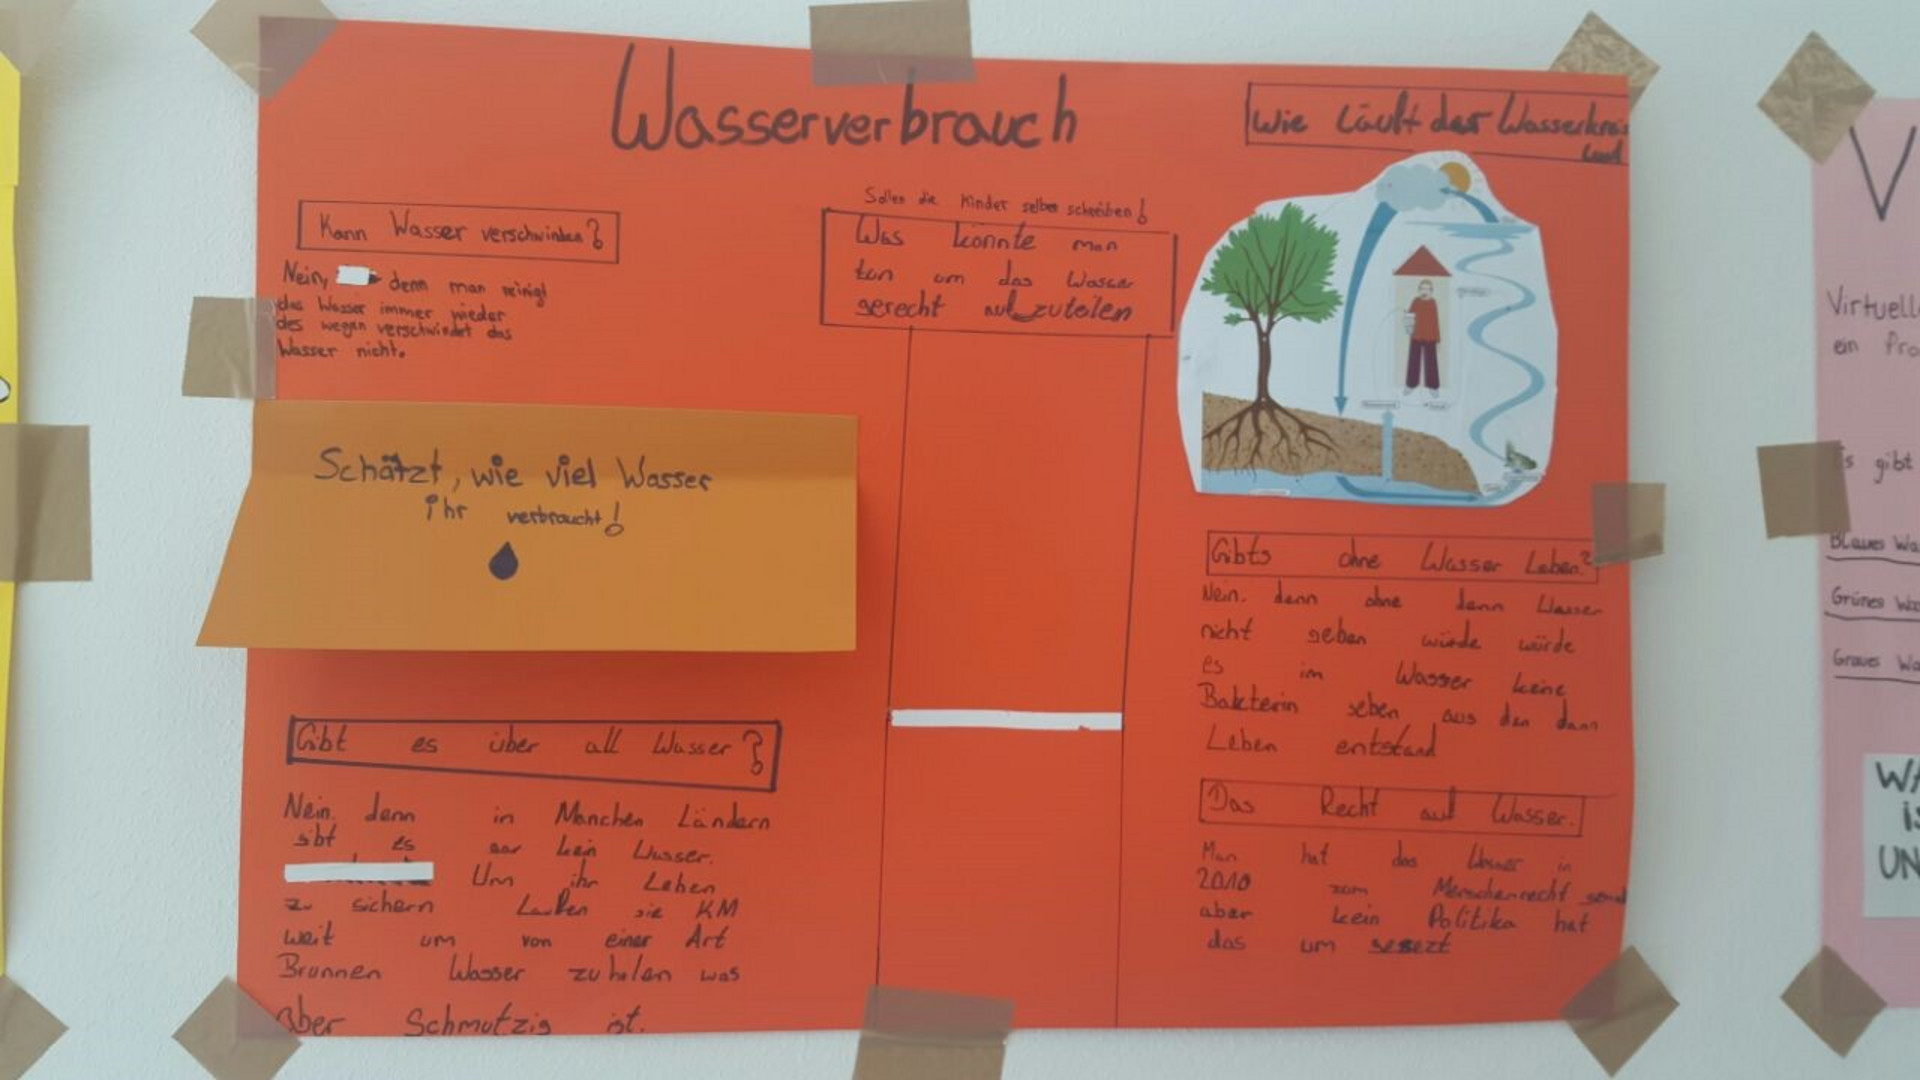 Wasserverbrauch
Wie läuft der Wasserkreis
lauf
Kann Wasser verschwinden?
Nein, denn man reinigt
das Wasser immer wieder
des wegen verschwindet das
Wasser nicht.
Schätzt, wie viel Wasser
ihr verbraucht!
Gibt es über all Wasser?
Nein. denn in Manchen Ländern
gibt es gar kein Wasser.
Um ihr Leben
zu sichern Laufen sie KM
weit um von einer Art
Brunnen Wasser zu holen was
aber Schmutzig ist.
Sollen die Kinder selber schreiben!
Was könnte man
tun um das Wasser
gerecht auf zuteilen
Gibts ohne Wasser Leben?
Nein. denn ohne denn Wasser
nicht geben würde würde
es im Wasser keine
Bakterin geben aus den dann
Leben entstand
Das Recht auf Wasser.
Man hat das Wasser in
2010 zum Menschenrecht
aber kein Politika hat
das um gesezt
V
Virtuell
ein Pro
Es gibt
Blaues Wa
Grünes Wa
Graues Wa
WA
is
UN